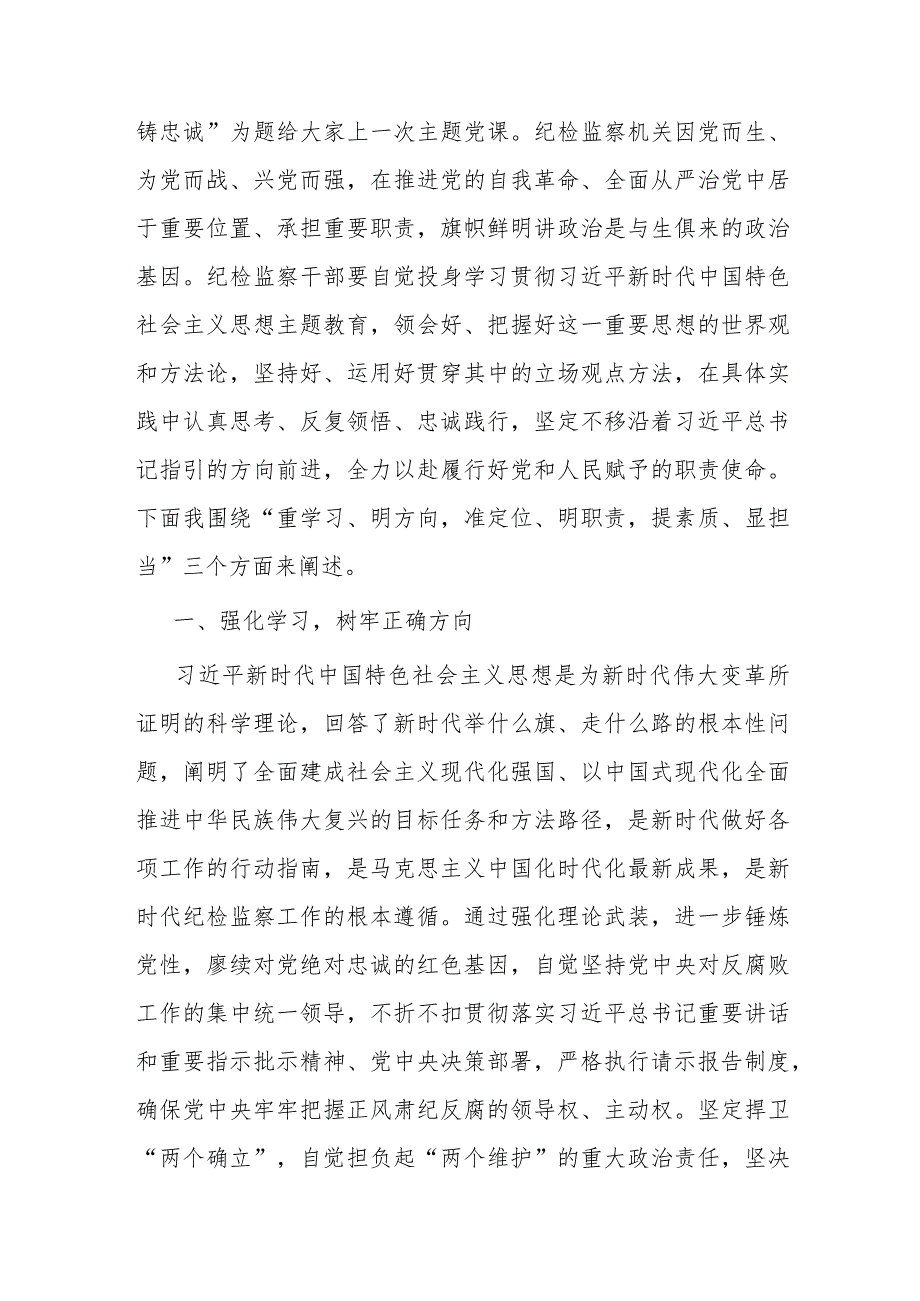 铸忠诚”为题给大家上一次主题党课。纪检监察机关因党而生、
为党而战、兴党而强，在推进党的自我革命、全面从严治党中居
于重要位置、承担重要职责，旗帜鲜明讲政治是与生俱来的政治
基因。纪检监察干部要自觉投身学习贯彻习近平新时代中国特色
社会主义思想主题教育，领会好、把握好这一重要思想的世界观
和方法论，坚持好、运用好贯穿其中的立场观点方法，在具体实
践中认真思考、反复领悟、忠诚践行，坚定不移沿着习近平总书
记指引的方向前进，全力以赴履行好党和人民赋予的职责使命。
下面我围绕“重学习、明方向，准定位、明职责，提素质、显担
当”三个方面来阐述。
一、强化学习，树牢正确方向
习近平新时代中国特色社会主义思想是为新时代伟大变革所
证明的科学理论，回答了新时代举什么旗、走什么路的根本性问
题，阐明了全面建成社会主义现代化强国、以中国式现代化全面
推进中华民族伟大复兴的目标任务和方法路径，是新时代做好各
项工作的行动指南，是马克思主义中国化时代化最新成果，是新
时代纪检监察工作的根本遵循。通过强化理论武装，进一步锤炼
党性，廖续对党绝对忠诚的红色基因，自觉坚持党中央对反腐败
工作的集中统一领导，不折不扣贯彻落实习近平总书记重要讲话
和重要指示批示精神、党中央决策部署，严格执行请示报告制度，
确保党中央牢牢把握正风肃纪反腐的领导权、主动权。坚定捍卫
“两个确立”，自觉担负起“两个维护”的重大政治责任，坚决